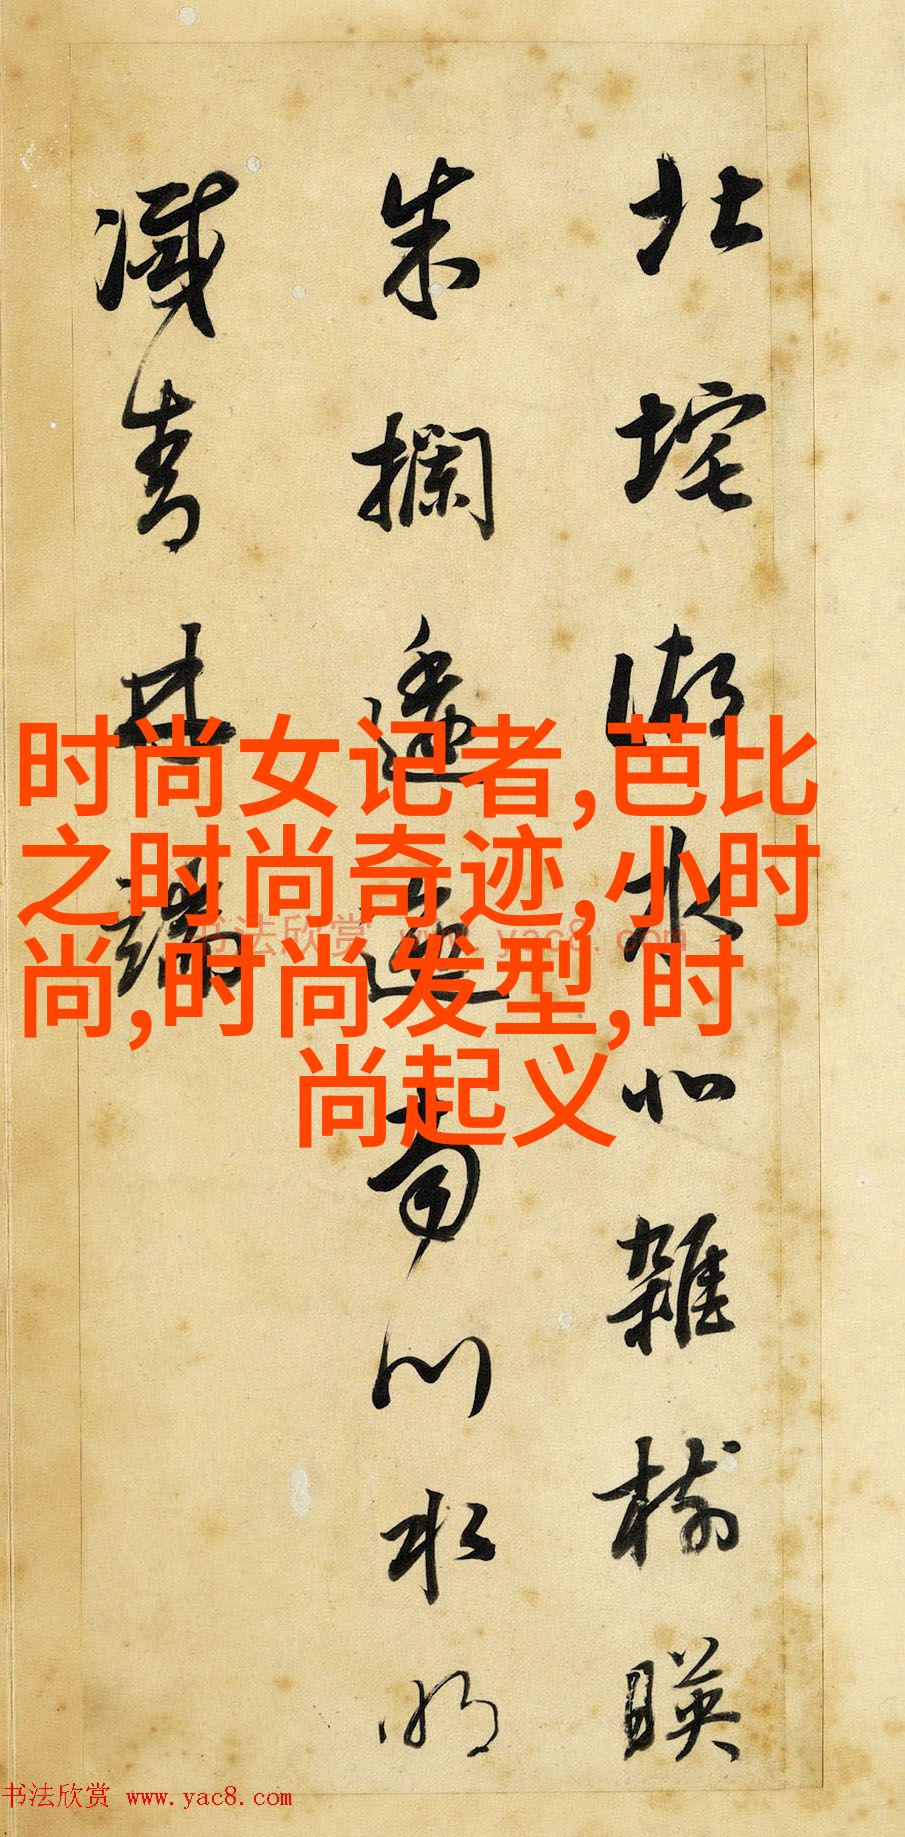 北垞湖水北雜樹暎
朱攔逶迤南川水明
滅青林端
时尚女记者,芭比
之时尚奇迹,小时
尚,时尚发型,时
尚起义
书法欣赏 www.yac8.com
书法欣赏 www.yac8.com